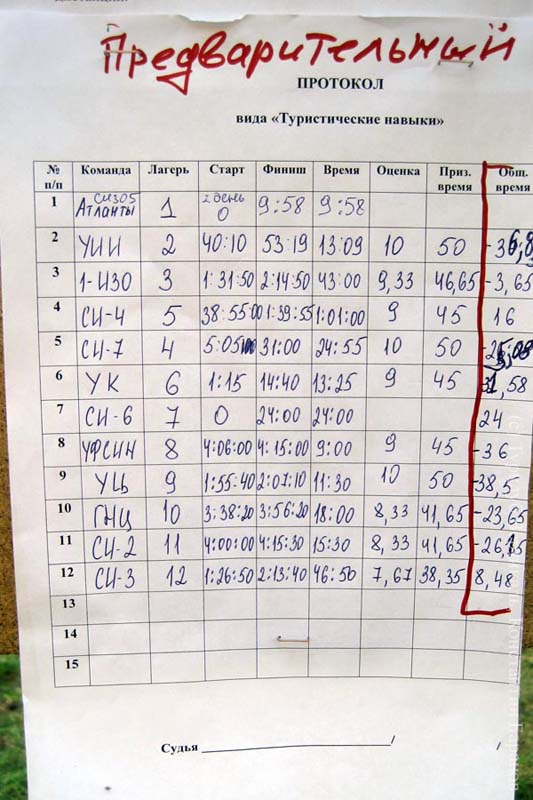 Предварительный
ПРОТОКОЛ
вида «Туристические навыки»
№ п/п Команда Лагерь Старт Финиш Время Оценка Приз. время Общ. время
1 СИЗО5 Атланты 1 2 день 0 9:58 9:58
2 УИИ 2 40:10 53:19 13:09 10 50 -36,8
3 1-ИЗО 3 1:31:50 2:14:50 43:00 9,33 46,65 -3,65
4 СИ-4 5 38:55:00 1:39:55 1:01:00 9 45 16
5 СИ-7 4 5:05 31:00 24:55 10 50
6 УК 6 1:15 14:40 13:25 9 45 31,58
7 СИ-6 7 0 24:00 24:00 24
8 УФСИН 8 4:06:00 4:15:00 9:00 9 45 -36
9 УЦ 9 1:55:40 2:07:10 11:30 10 50 -38,5
10 ГНЦ 10 3:38:20 3:56:20 18:00 8,33 41,65 -23,65
11 СИ-2 11 4:00:00 4:15:30 15:30 8,33 41,65
12 СИ-3 12 1:26:50 2:13:40 46:50 7,67 38,35 8,48
13
14
15
Судья / /